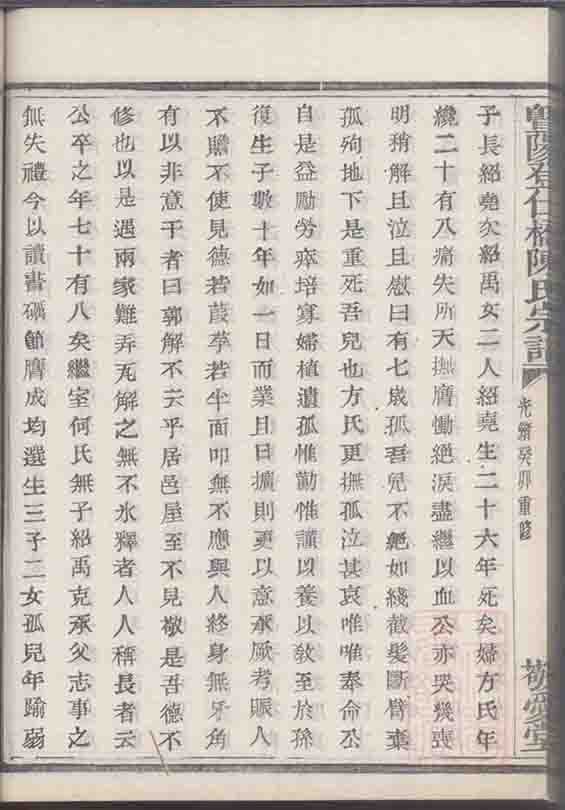 暨陽孝仁橋陳氏宗譜
光緒癸卯重修
敬愛堂
子長紹堯次紹禹女二人紹堯生二十六年死矣婦方氏年
纔二十有八痛失所天撫膺慟絕淚盡繼以血公亦哭幾喪
明稍解且泣且慰曰有七歲孤吾兒不絕如綫截髮斷臂棄
孤殉地下是重死吾兒也方氏更撫孤泣甚哀唯唯奉命公
自是益勵勞瘁培寡婦植遺孤惟勤惟謹以養以教至於孫
復生子數十年如一日而業且日擴則更以意承厥考賑人
不贍不使見德若葭莩若半面叩無不應與人終身無牙角
有以非意干者曰郭解不云乎居邑屋至不見敬是吾德不
修也以是遇兩家難弄丸解之無不氷釋者人人稱長者云
公卒之年七十有八矣繼室何氏無子紹禹克承父志事之
無失禮今以讀書礪節膺成均選生三子二女孤兒年踰弱